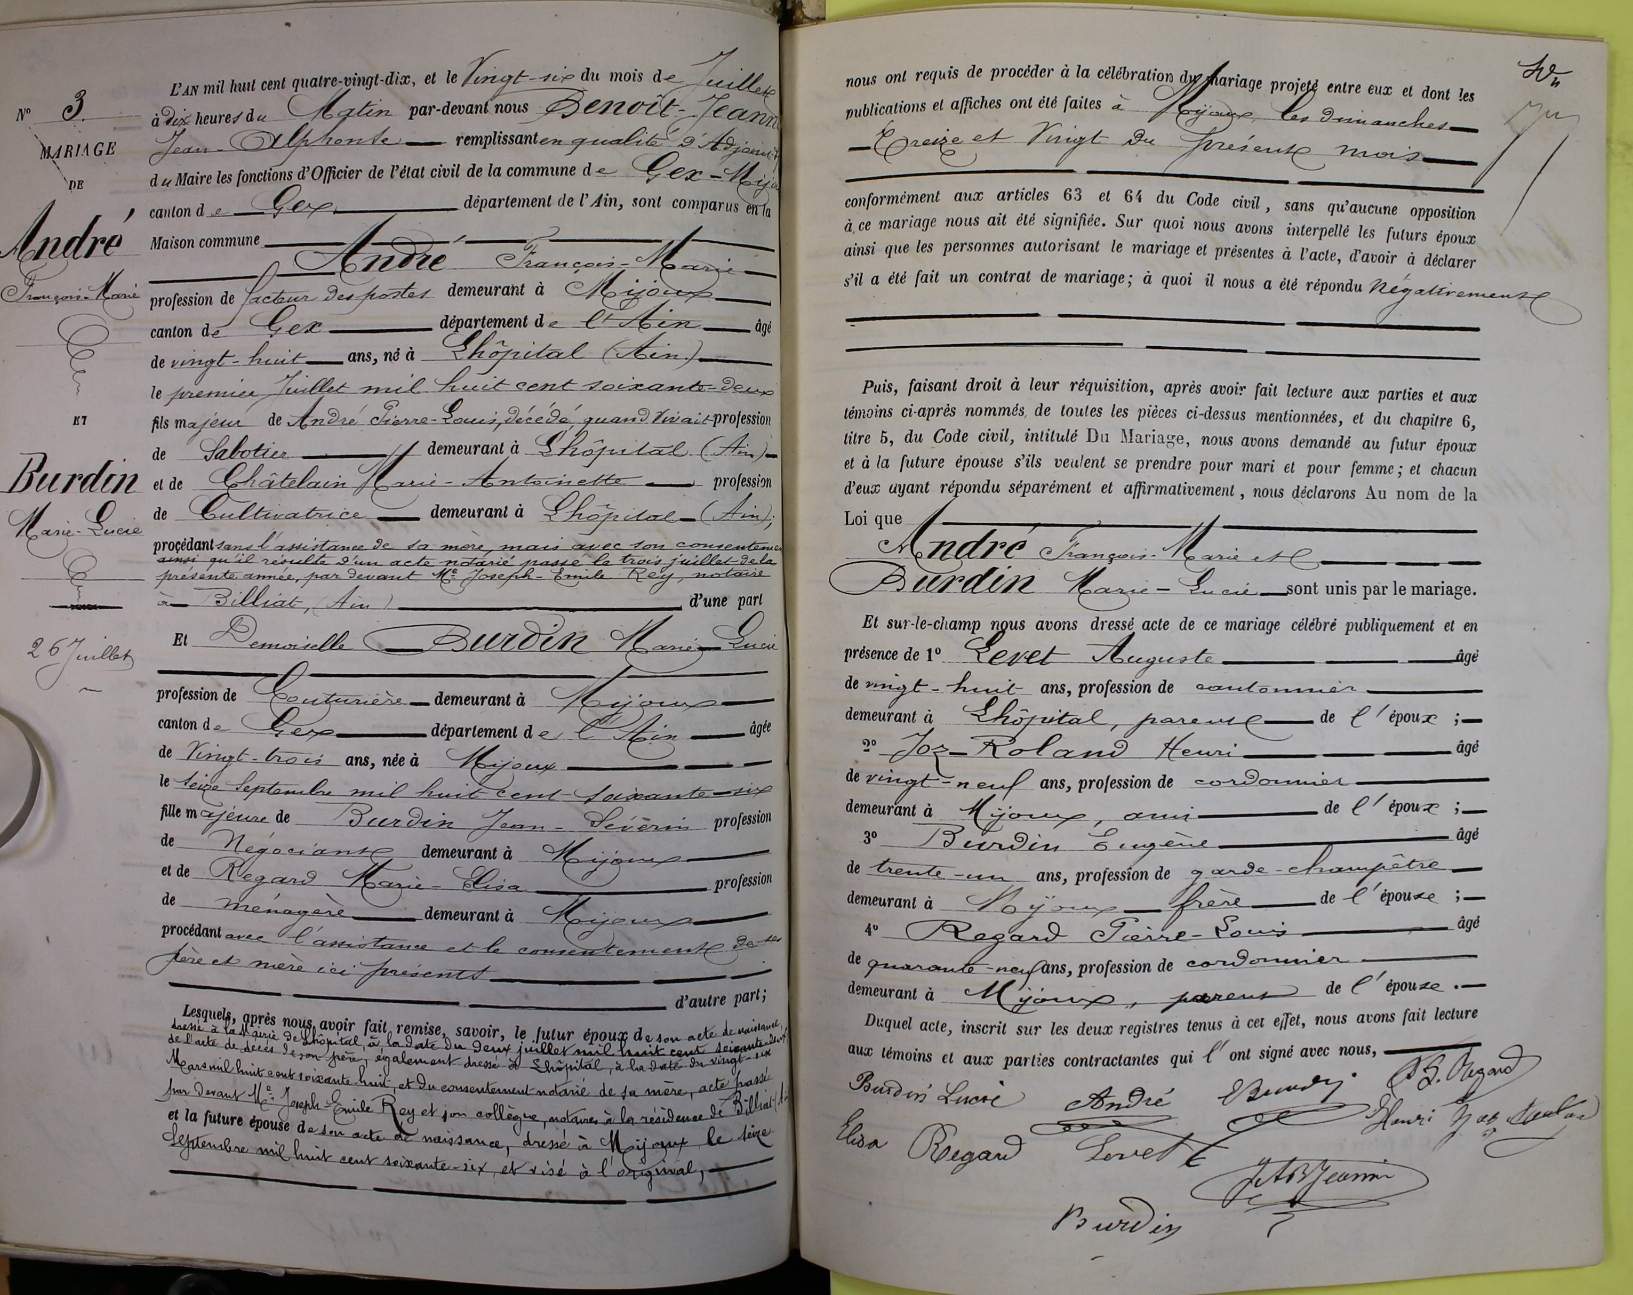 N° 3.
MARIAGE
DE
André
François-Marie
ET
Burdin
Marie-Lucie
26 Juillet
L'AN mil huit cent quatre-vingt-dix, et le Vingt-six du mois de Juillet
à dix heures du Matin par-devant nous Benoît-Jeann
Jean-Alphonse remplissant en qualité d'Adjoint
du Maire les fonctions d'Officier de l'état civil de la commune de Gex-Mijo
canton de Gex département de l'Ain, sont comparus en la
Maison commune
André François-Marie
profession de facteur des postes demeurant à Mijoux
canton de Gex département de l'Ain âgé
de vingt-huit ans, né à Lhôpital (Ain)
le premier Juillet mil huit cent soixante-deux
fils majeur de André Pierre-Louis, décédé, quand vivait profession
de Sabotier demeurant à Lhôpital (Ain)
et de Châtelain Marie-Antoinette profession
de Cultivatrice demeurant à Lhôpital (Ain);
procédant sans l'assistance de sa mère, mais avec son consenteme
ainsi qu'il résulte d'un acte notarié passé le trois juillet de la
présente année, par devant Me Joseph-Emile Rey, notaire
à Billiat, (Ain) d'une part
Et Demoiselle Burdin Marie-Lucie
profession de Couturière demeurant à Mijoux
canton de Gex département de l'Ain âgée
de Vingt-trois ans, née à Mijoux
le seize Septembre mil huit cent soixante-six
fille majeure de Burdin Jean-Sévérin profession
de Négociant demeurant à Mijoux
et de Regard Marie-Elisa profession
de ménagère demeurant à Mijoux
procédant avec l'assistance et le consentement de ses
père et mère ici présents
d'autre part;
Lesquels, après nous avoir fait remise, savoir, le futur époux de son acte de naissance,
dressé à la Mairie de Lhôpital, à la date du deux juillet mil huit cent soixante-deux
de l'acte de décès de son père, également dressé à Lhôpital, à la date du vingt-six
Mars mil huit cent soixante huit, et du consentement notarié de sa mère, acte passé
par devant Me Joseph-Emile Rey et son collègue, notaires à la résidence de Billiat (Ai
et la future épouse de son acte de naissance, dressé à Mijoux le seize
Septembre mil huit cent soixante-six, et visé à l'original,
nous ont requis de procéder à la célébration du mariage projeté entre eux et dont les
publications et affiches ont été faites à Mijoux, les dimanches
Treize et Vingt du présent mois
conformément aux articles 63 et 64 du Code civil, sans qu'aucune opposition
à ce mariage nous ait été signifiée. Sur quoi nous avons interpellé les futurs époux
ainsi que les personnes autorisant le mariage et présentes à l'acte, d'avoir à déclarer
s'il a été fait un contrat de mariage; à quoi il nous a été répondu Négativement
Puis, faisant droit à leur réquisition, après avoir fait lecture aux parties et aux
témoins ci-après nommés, de toutes les pièces ci-dessus mentionnées, et du chapitre 6,
titre 5, du Code civil, intitulé Du Mariage, nous avons demandé au futur époux
et à la future épouse s'ils veulent se prendre pour mari et pour femme; et chacun
d'eux ayant répondu séparément et affirmativement, nous déclarons Au nom de la
Loi que
André François-Marie et
Burdin Marie-Lucie sont unis par le mariage.
Et sur-le-champ nous avons dressé acte de ce mariage célébré publiquement et en
présence de 1° Levet Auguste âgé
de vingt-huit ans, profession de cantonnier
demeurant à Lhôpital, parent de l'époux;
2° Joz-Roland Henri âgé
de vingt-neuf ans, profession de cordonnier
demeurant à Mijoux, ami de l'époux;
3° Burdin Eugène âgé
de trente-un ans, profession de garde-champêtre
demeurant à Mijoux frère de l'épouse;
4° Regard Pierre-Louis âgé
de quarante-neuf ans, profession de cordonnier
demeurant à Mijoux, parent de l'épouse.
Duquel acte, inscrit sur les deux registres tenus à cet effet, nous avons fait lecture
aux témoins et aux parties contractantes qui l'ont signé avec nous,
Burdin Lucie André Burdin Regard
Elisa Regard Levet Henri Joz Roland
JABJeannin
Burdin